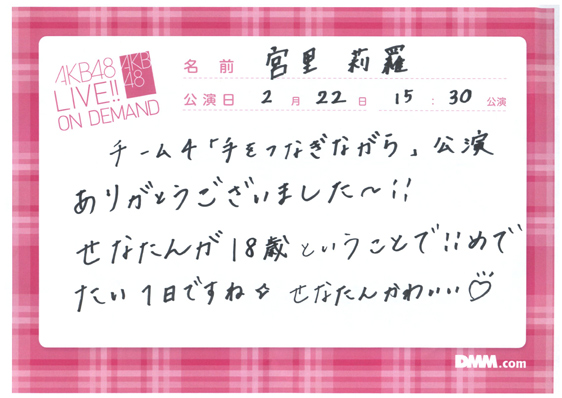 AKB48
LIVE!!
ON DEMAND
AKB
48
名前 宮里 莉羅
公演日 2月22日 15:30公演
チーム4「手をつなぎながら」公演
ありがとうございました〜!!
せなたんが18歳ということで!!めで
たい1日ですね☆ せなたんかわいい♡
DMM.com